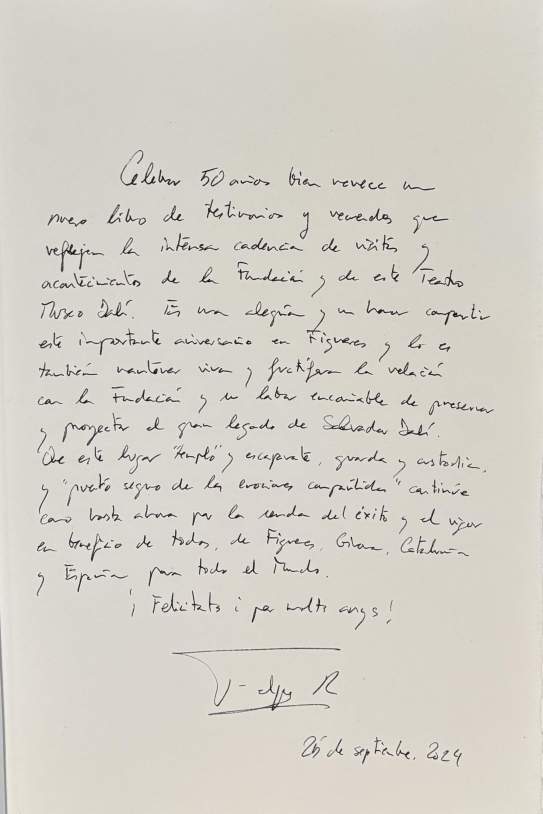 Celebrar 50 años bien merece un
nuevo libro de testimonios y recuerdos que
reflejen la intensa cadencia de visitas y
acontecimientos de la Fundación y de este Teatro
Museo Dalí. Es una alegría y un honor compartir
este importante aniversario en Figueres y lo es
también mantener viva y fructífera la relación
con la Fundación y su labor encomiable de preservar
y proyectar el gran legado de Salvador Dalí.
Que este lugar "templo" y escaparate, guarda y custodia,
y "puerto seguro de las emociones compartidas" continúe
como hasta ahora por la senda del éxito y el vigor
en beneficio de todos, de Figueres, Girona, Cataluña
y España para todo el Mundo.
¡Felicitats i per molts anys!
Felipe R
26 de septiembre, 2024